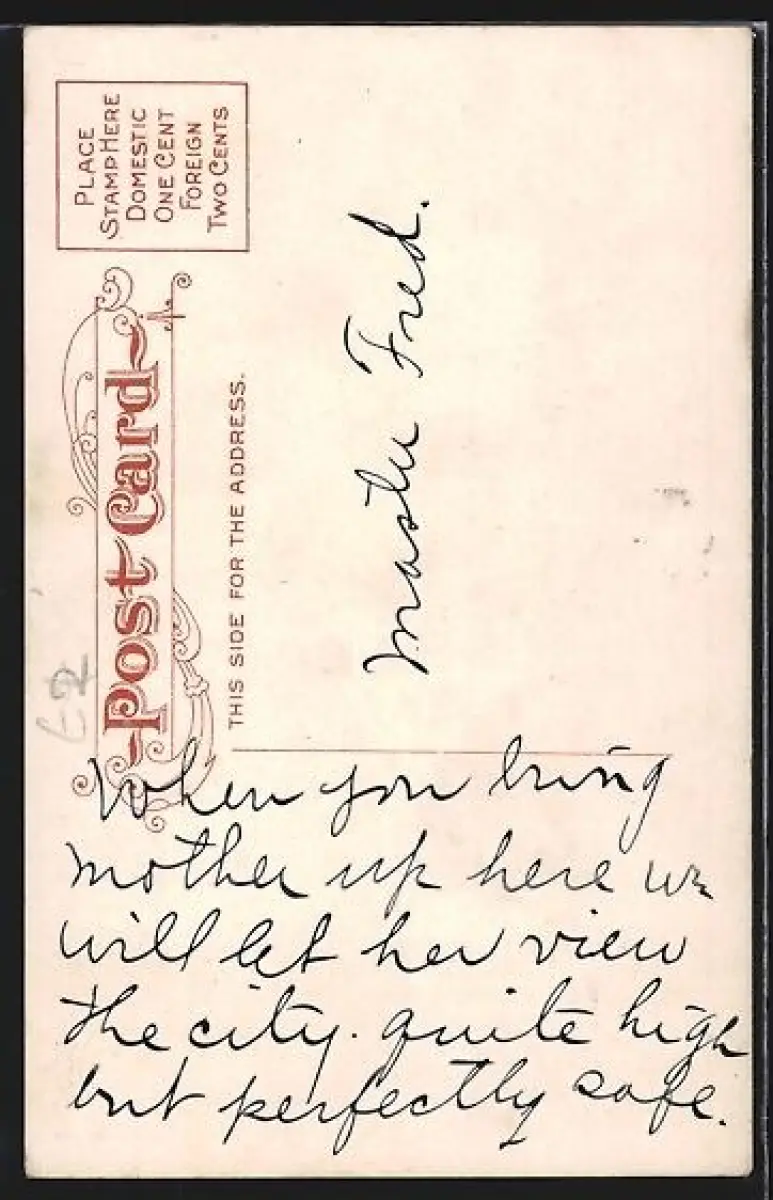 PLACE
STAMP HERE
DOMESTIC
ONE CENT
FOREIGN
TWO CENTS
Post Card
THIS SIDE FOR THE ADDRESS.
Master Fred.
When you bring
mother up here we
will let her view
the city. quite high
but perfectly safe.